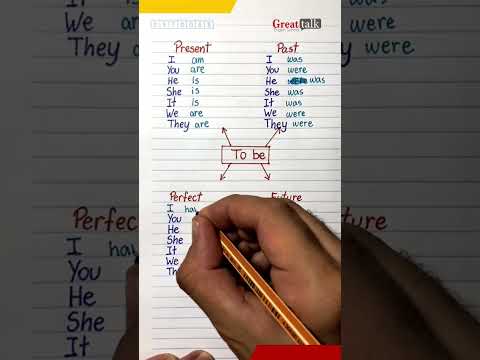 Great talk
Present
I am
You are
He is
She is
It is
We are
They are
Past
I was
You were
He was
She was
It was
We were
They were
To be
Perfect
I hav
You
He
She
It
We
Th
Future
Perfect
I hav
You
He
She
It